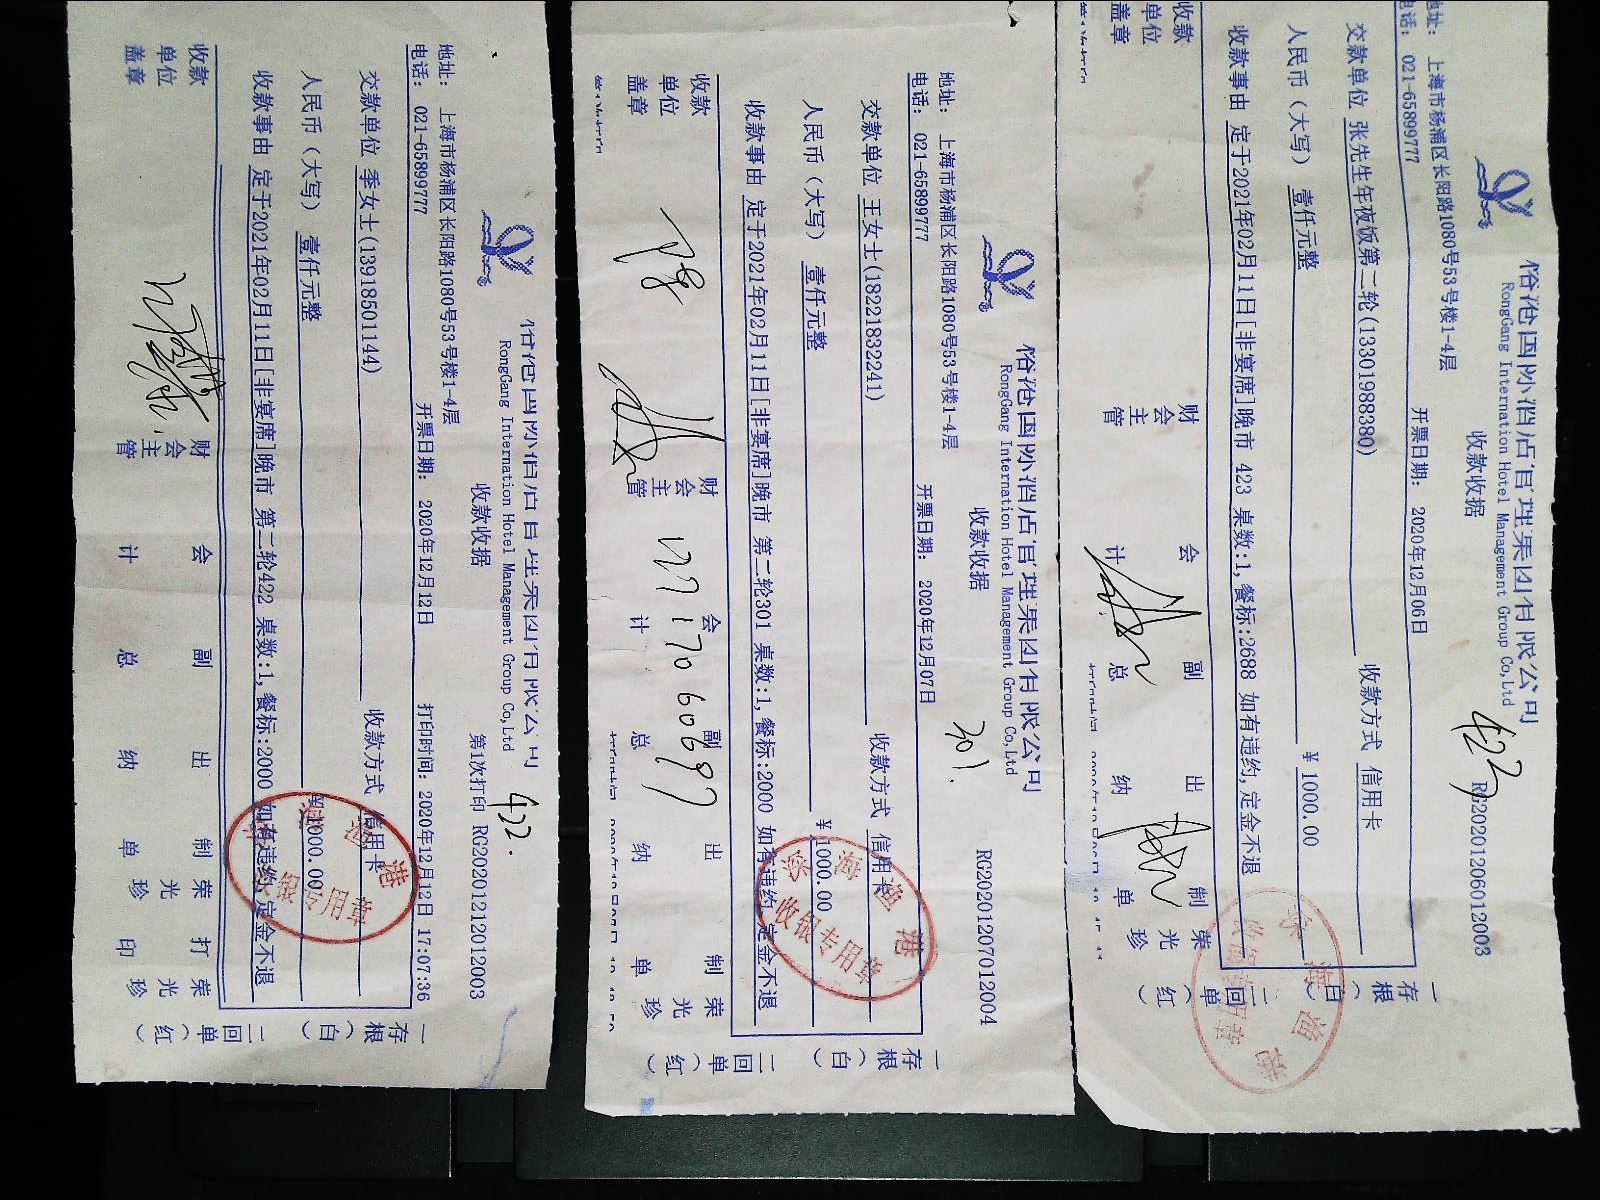 RongGang International Hotel Management Group Co,Ltd
422.
收款收据
第1次打印 RG20201212012003
地址： 上海市杨浦区长阳路1080号53号楼1-4层
电话： 021-65899777
开票日期： 2020年12月12日
打印时间: 2020年12月12日 17:07:36
交款单位 季女士(13918501144)
收款方式 信用卡
人民币（大写） 壹仟元整
¥1000.00
收款事由 定于2021年02月11日[非宴席]晚市 第二轮422 桌数:1,餐标:2000 如有违约,定金不退
收款单位盖章
财会主管
会计
副总
出纳
制单 荣光珍
打印 荣光珍
一存根（白）
二回单（红）
港
银专用章
RongGang International Hotel Management Group Co,Ltd
301.
收款收据
RG20201207012004
地址： 上海市杨浦区长阳路1080号53号楼1-4层
电话： 021-65899777
开票日期： 2020年12月07日
交款单位 王女士(18221832241)
收款方式 信用卡
人民币（大写） 壹仟元整
¥1000.00
收款事由 定于2021年02月11日[非宴席]晚市 第二轮301 桌数:1,餐标:2000 如有违约,定金不退
收款单位盖章
财会主管
会计
副总
出纳
制单 荣光珍
一存根（白）
二回单（红）
海渔港
收银专用章
RongGang International Hotel Management Group Co,Ltd
423
收款收据
RG20201206012003
地址： 上海市杨浦区长阳路1080号53号楼1-4层
电话： 021-65899777
开票日期： 2020年12月06日
交款单位 张先生年夜饭第二轮(13301988380)
收款方式 信用卡
人民币（大写） 壹仟元整
¥ 1000.00
收款事由 定于2021年02月11日[非宴席]晚市 423 桌数:1,餐标:2688 如有违约,定金不退
收款单位盖章
财会主管
会计
副总
出纳
制单 荣光珍
一存根（白）
二回单（红）
海渔港